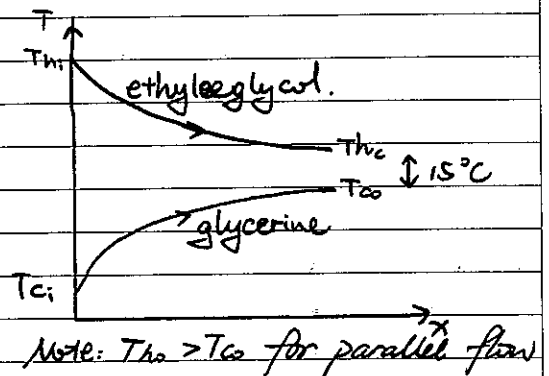 T
Thi
ethyleeglycol.
Thc
15°C
Tco
glycerine
Tci
x
Note: Tho > Tco for parallel flow